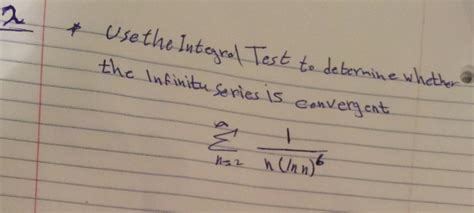 2
* Use the Integral Test to determine whether
the Infinitu series is convergent
∞
Σ 1
n=2 n (ln n)^6